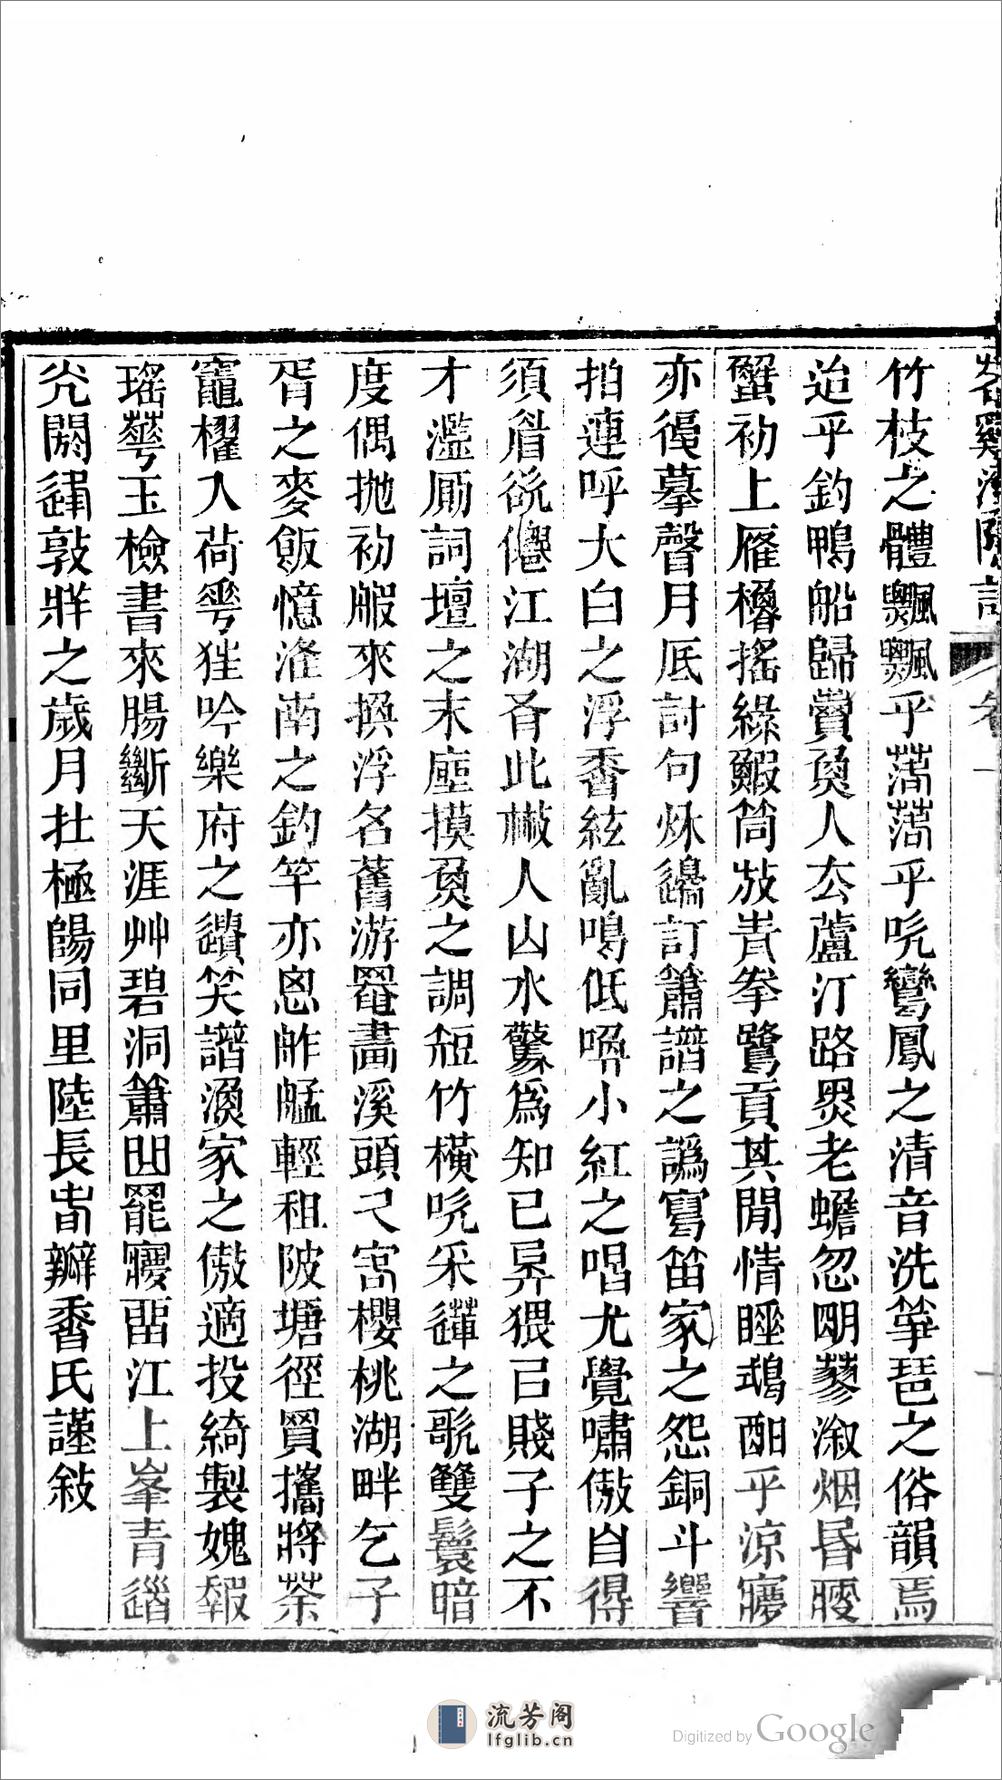 竹枝之體飄飄乎落落乎吮鸞鳳之清音洗箏琶之俗韻焉
迨乎釣鴨船歸賣魚人去蘆汀路黑老蟾忽明蓼溆烟昏瞍
蟹初上雁櫓搖綠鰕筒放青拳鷺貢其閒情睡鵁酣乎涼寢
亦復摹聲月底討句烁邊訂簫譜之譌寫笛家之怨銅斗響
拍連呼大白之浮香絃亂鳴低喚小紅之唱尤覺嘯傲自得
須眉欲僊江湖有此樾人山水驚為知已昇猥㠯賤子之不
才濫厠詞壇之末座摸魚之調短竹橫吮采蓮之歌雙鬟暗
度偶拋初服來換浮名舊游罨畫溪頭又富櫻桃湖畔乞子
胥之麥飯憶滄南之釣竿亦思舴艋輕租陂塘徑買攜將茶
竈櫂入荷雩狂吟樂府之續笑譜漁家之傲適投綺製媿報
瑤蕚玉檢書來腸斷天涯艸碧洞簫凹罷寢畱江上峯青道
光閼逢敦牂之歲月壯極陽同里陸長春瓣香氏謹敍
卷一
Digitized by Google
流芳阁
lfglib.cn